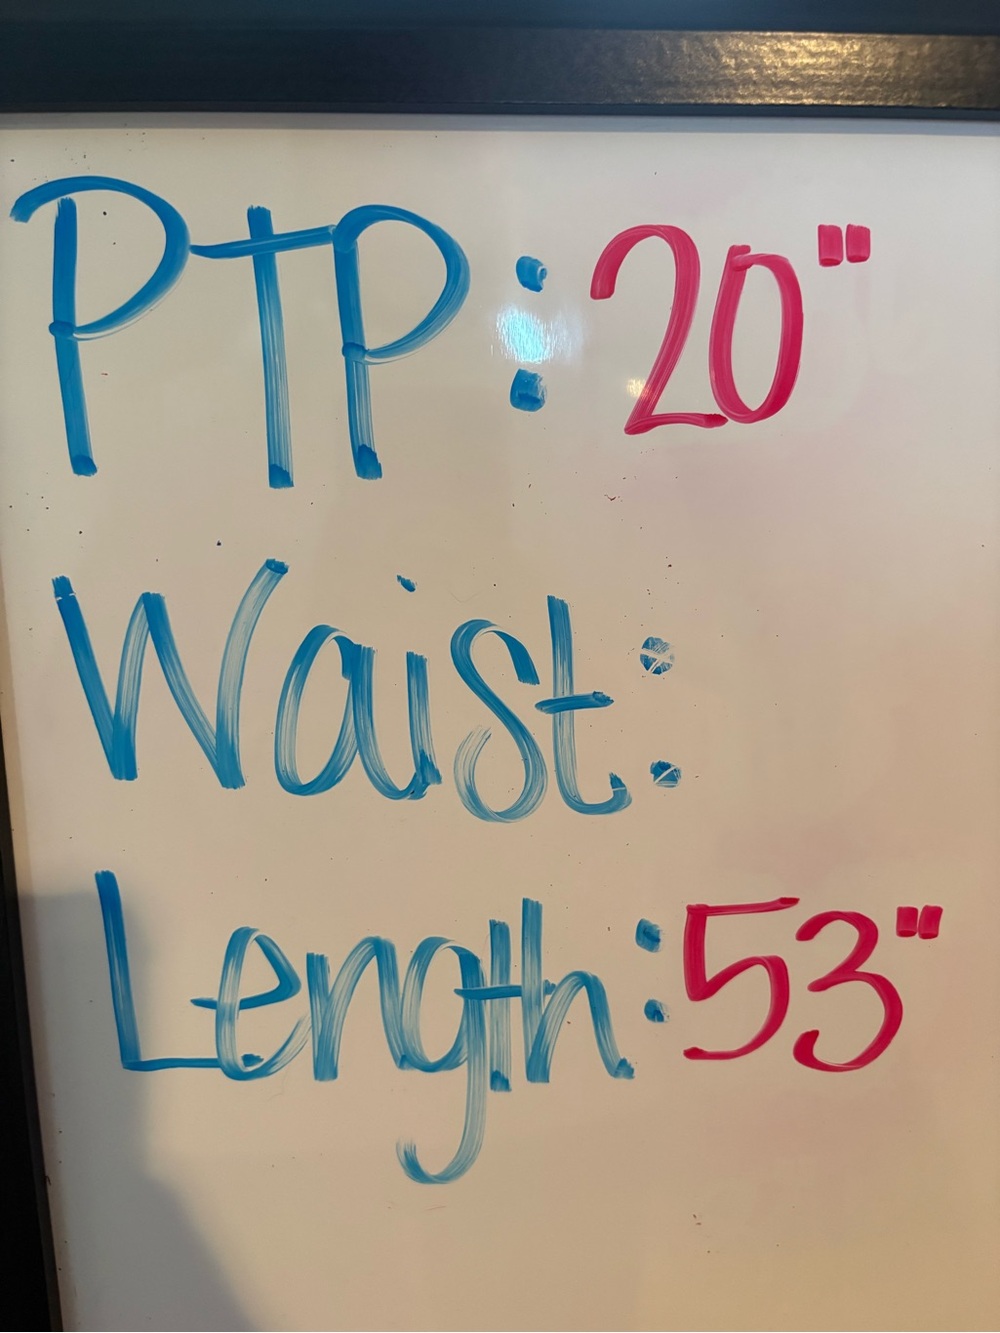 PTP: 20"
Waist:
Length: 53"